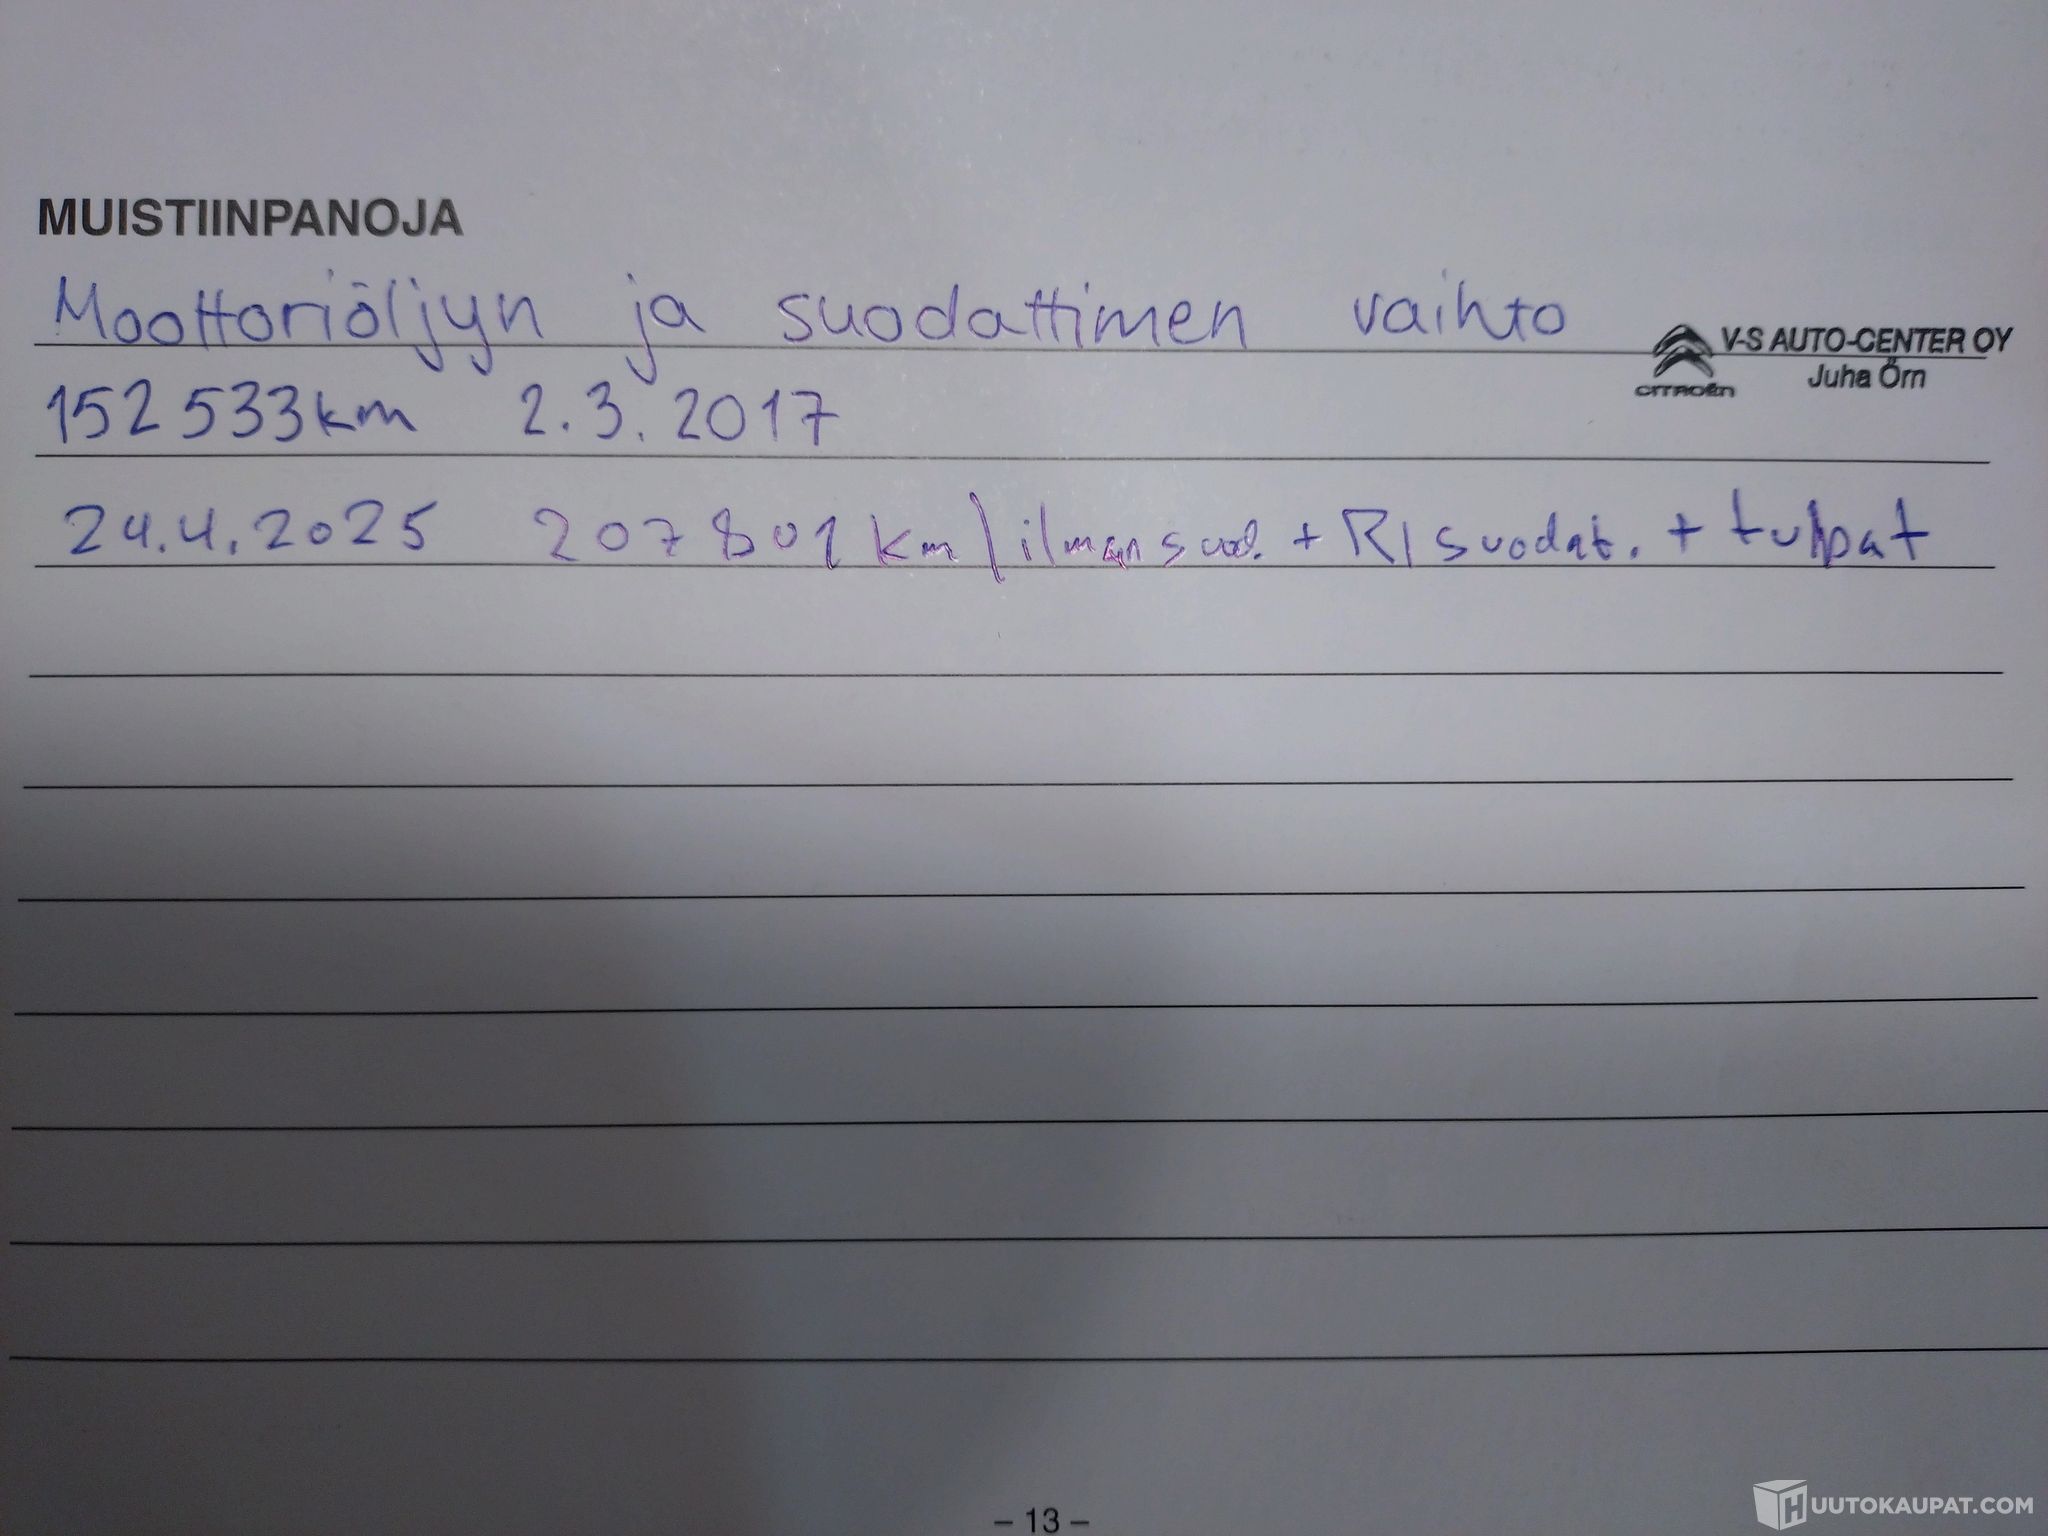 MUISTIINPANOJA
Moottoriöljyn ja suodattimen vaihto
V-S AUTO-CENTER OY
Juha Örn
CITROËN
152 533km 2.3.2017
24.4.2025 207801 km / ilman suod. + RI suodat. + tulpat
– 13 –
HUUTOKAUPAT.COM